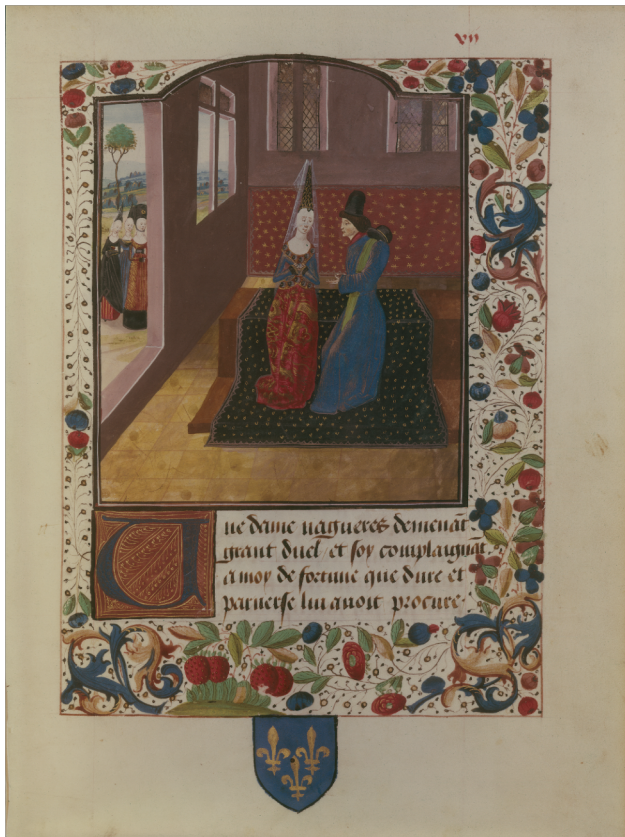 vii
Une dame nagueres demenāt
grant dueil et soy complaignāt
a moy de fortune que dure et
parverse lui avoit procure